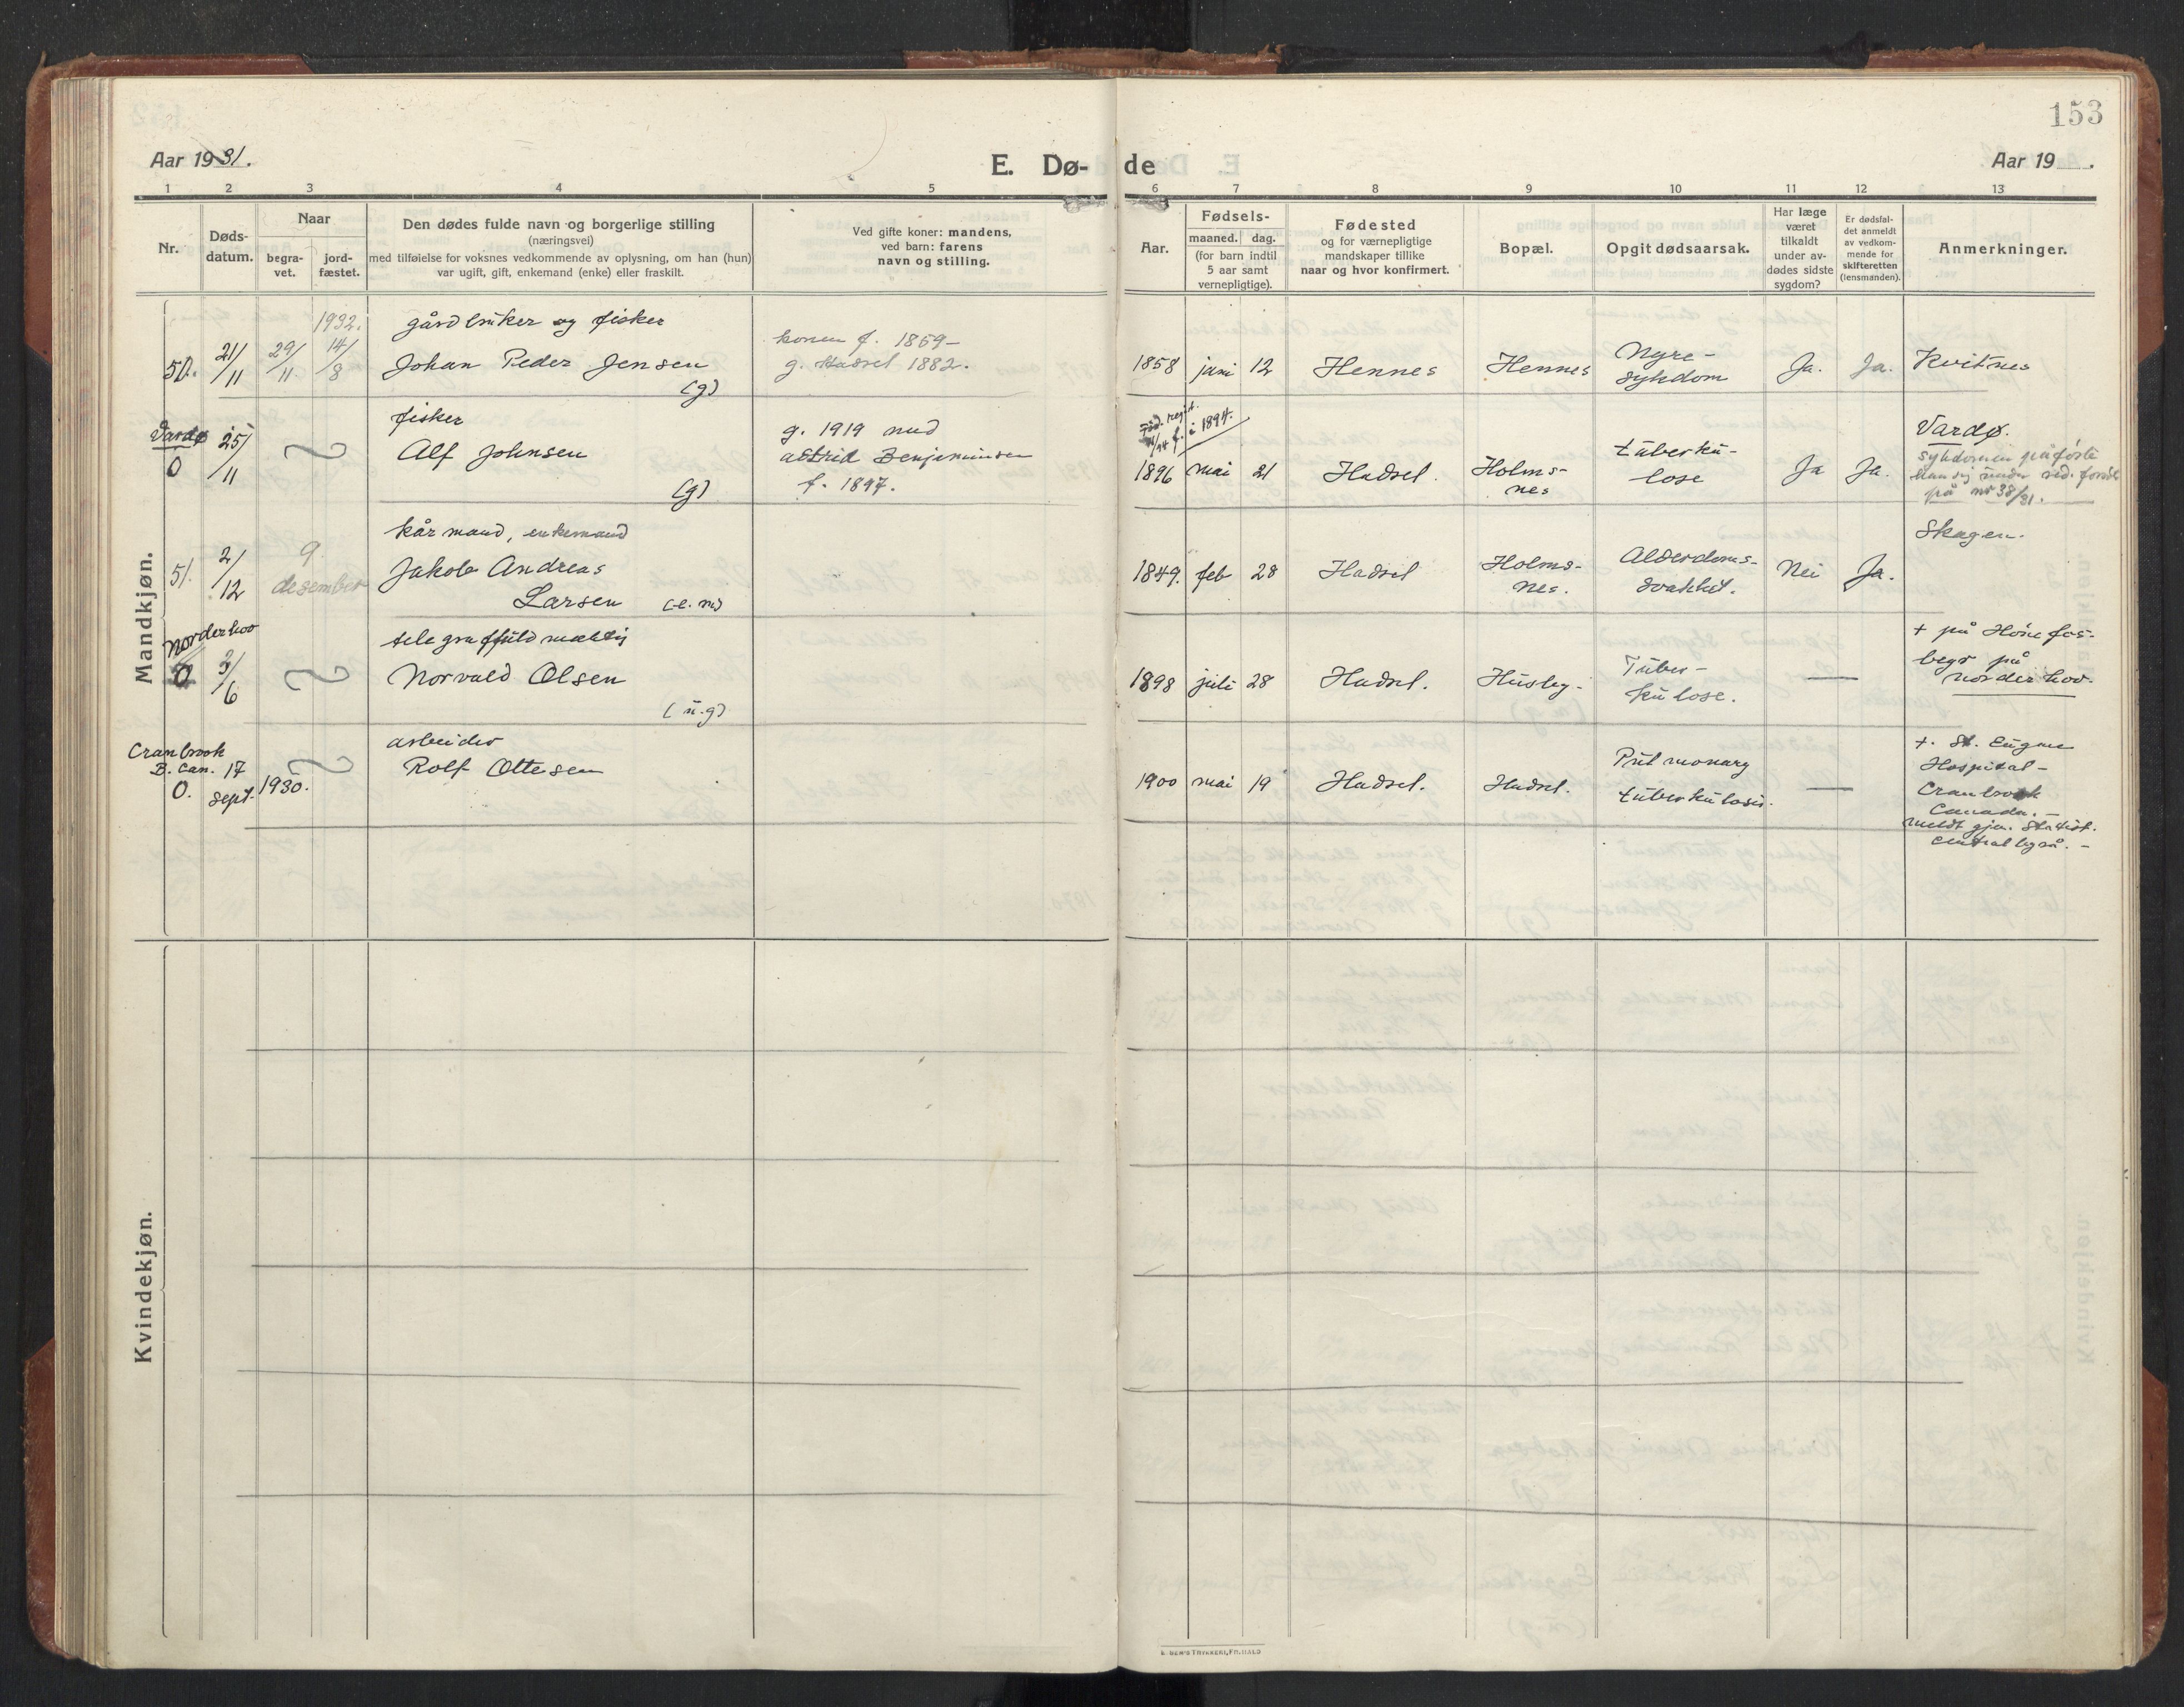 153
Aar 1931.
E. Dø- de
Aar 19 .
1 2 3 4 5 6 7 8 9 10 11 12 13
Nr.
Døds-
datum.
Naar
begra-
vet.
jord-
fæstet.
Den dødes fulde navn og borgerlige stilling
(næringsvei)
med tilføielse for voksnes vedkommende av oplysning, om han (hun)
var ugift, gift, enkemand (enke) eller fraskilt.
Ved gifte koner: mandens,
ved barn: farens
navn og stilling.
Aar.
Fødsels-
maaned. dag.
(for barn indtil
5 aar samt
vernepligtige).
Fødested
og for værnepligtige
mandskaper tillike
naar og hvor konfirmert.
Bopæl.
Opgit dødsaarsak.
Har læge
været
tilkaldt
under av-
dødes sidste
sygdom?
Er dødsfal-
det anmeldt
av vedkom-
mende for
skifteretten
(lensmanden).
Anmerkninger.
Mandkjøn.
50. 21/11 29/11 1932. 14/8
gårdbruker og fisker
Johan Peder Jensen
(g)
konen f. 1859-
g. Hadsel 1882.
1858 juni 12 Hennes Hennes
Nyre-
sykdom
Ja. Ja. Kvitnes
Vardø
0 25/11
fisker
Alf Johnsen
(g)
g. 1919 med
Astrid Benjaminsen
f. 1897.
f. i 1894.
1896 mai 21 Hadsel.
Holms-
nes
tuberku-
lose
Ja Ja.
Vardø.
sykdommen påførte
han sig under
på nr 38/31.
51. 2/12
9.
desember
kårmand, enkemand
Jakob Andreas
Larsen (e.m)
1849. feb 28 Hadsel
Holms-
nes.
Alderdoms-
svakhet.
Nei Ja.
Skagen.
Norderhov
0 3/6
telegraffuldmektig
Norvald Olsen
(u.g)
1898 juli 28 Hadsel. Husby.
Tuber-
kulose.
—
+ på Hønefos-
begr på
Norderhov.
Cranbrook
B. Can.
0. 17 sept. 1930.
arbeider
Rolf Ottesen
1900 mai 19 Hadsel. Hadsel.
Pulmonary
tuberkulosis.
—
+. St. Eugene
Hospital-
Cranbrook
Canada. -
meldt gjen. Statist.
Centralbyrå. -
Kvindekjøn.